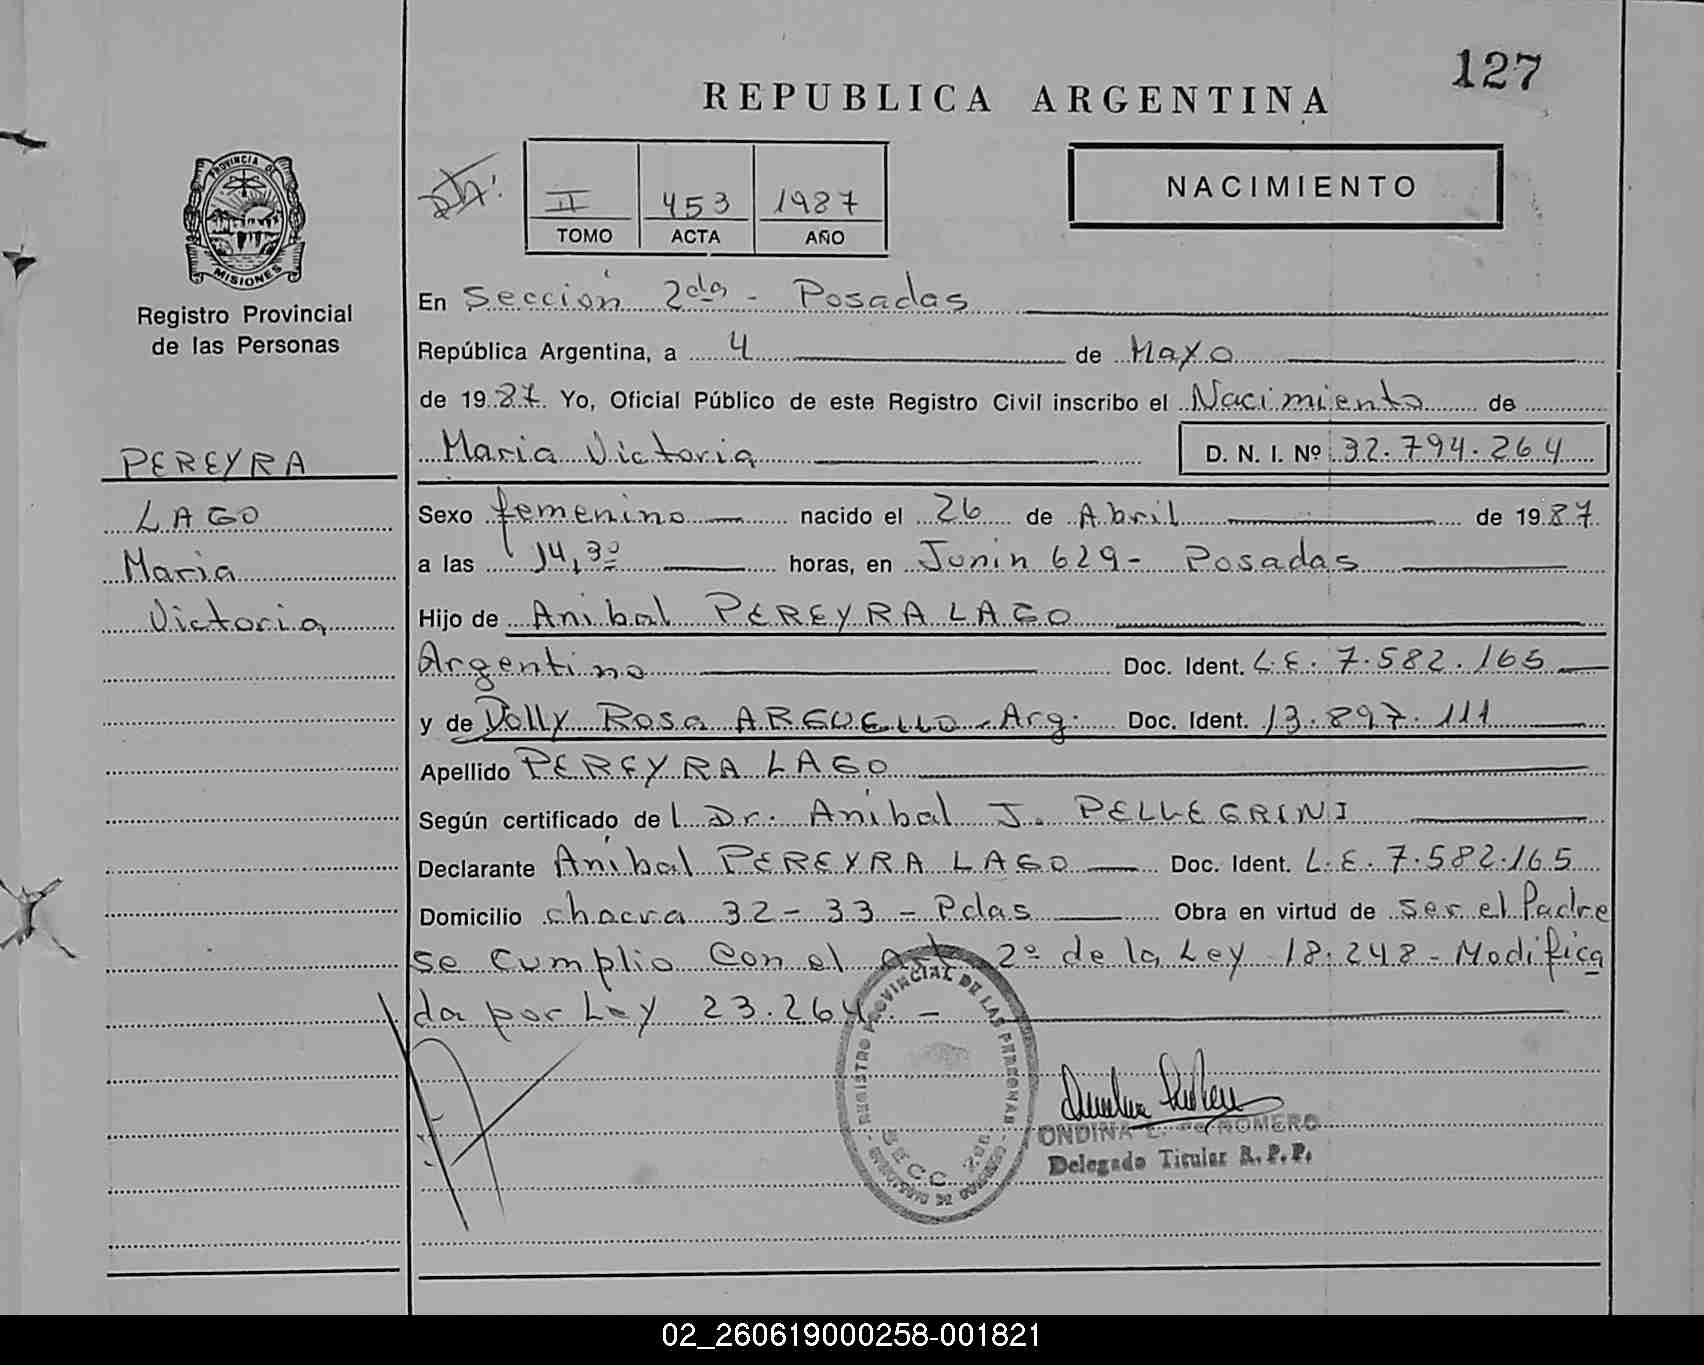 127
REPUBLICA ARGENTINA
II 453 1987
TOMO ACTA AÑO
NACIMIENTO
PROVINCIA DE MISIONES
Registro Provincial
de las Personas
PEREYRA
LAGO
Maria
Victoria
En Sección 2da - Posadas
República Argentina, a 4 de Mayo
de 1987 Yo, Oficial Público de este Registro Civil inscribo el Nacimiento de
Maria Victoria D. N. I. Nº 32.794.264
Sexo femenino nacido el 26 de Abril de 1987
a las 14,30 horas, en Junin 629 - Posadas
Hijo de Anibal PEREYRA LAGO
Argentino Doc. Ident. L.E. 7.582.165
y de Dolly Rosa ARGUELLO - Arg. Doc. Ident. 13.897.111
Apellido PEREYRA LAGO
Según certificado del Dr. Anibal J. PELLEGRINI
Declarante Anibal PEREYRA LAGO Doc. Ident. L.E. 7.582.165
Domicilio chacra 32-33 - Pdas Obra en virtud de ser el Padre
se cumplio con el art 2º de la Ley 18.248 - Modifica
da por Ley 23.264 -
REGISTRO PROVINCIAL DE LAS PERSONAS
SECC. 2da.
ONDINA E. de ROMERO
Delegado Titular R. P. P.
02_260619000258-001821